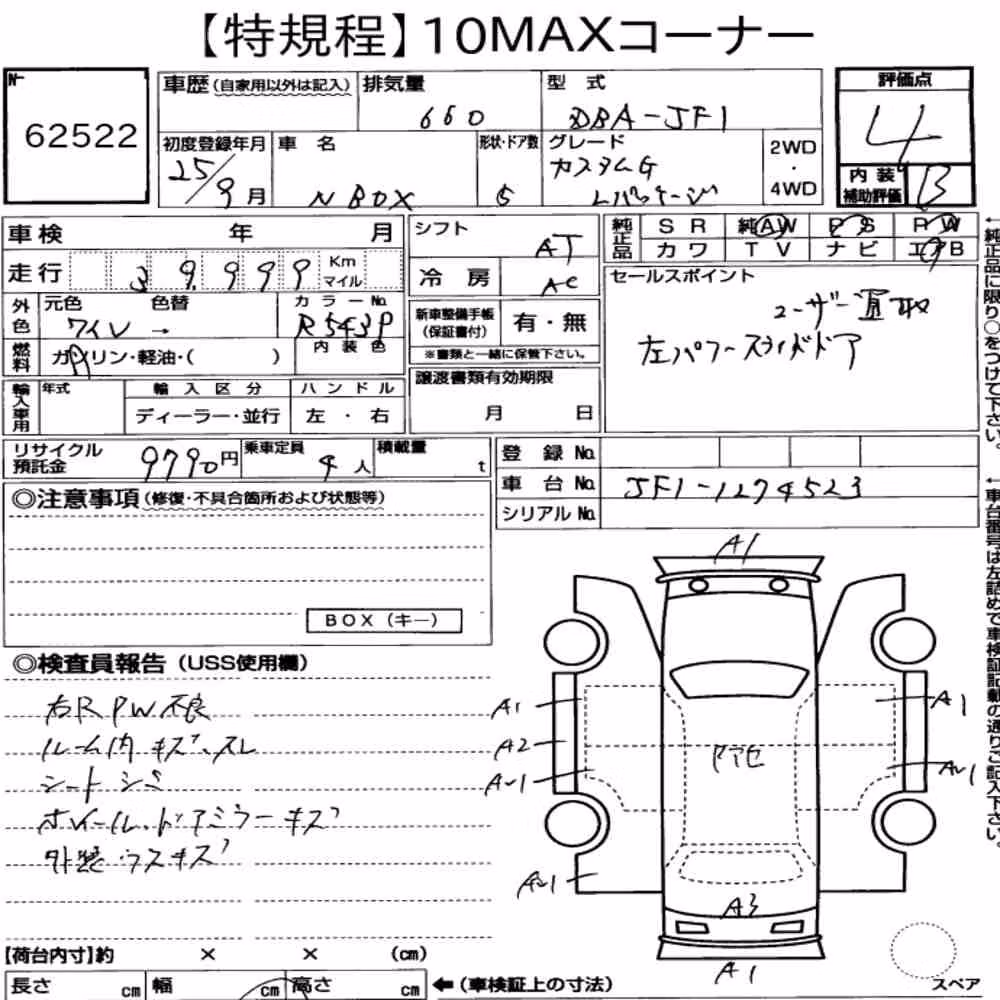 【特規程】10MAXコーナー
62522
車歴(自家用以外は記入) 排気量 660 型式 DBA-JF1
評価点 4
初度登録年月 25/9月 車名 N BOX 形状・ドア数 5 グレード カスタムG Lパッケージ 2WD・4WD
内装補助評価 B
車検 年 月 シフト AT
純正品 SR 純AW PS PW
カワ TV ナビ エアB
走行 39,999 Km マイル 冷房 AC
セールスポイント
ユーザー買取
左パワースライドドア
外色 元色 ワイン → 色替 カラーNo. R543P
新車整備手帳(保証書付) 有・無
※書類と一緒に保管下さい。
燃料 ガソリン・軽油・( ) 内装色
輸入車用 年式 輸入区分 ハンドル
ディーラー・並行 左・右
譲渡書類有効期限
月 日
リサイクル預託金 9790円 乗車定員 4人 積載量 t
登録No.
車台No. JF1-1274523
シリアルNo.
◎注意事項(修復・不具合箇所および状態等)
BOX(キー)
◎検査員報告(USS使用欄)
右RPW不良
ルーム内キズ、スレ
シートシミ
ホイール、ドアミラーキズ
外装ウスキズ
A1
A1
A1
A2
AU1
AU1
AU1
A3
A1
【荷台内寸】約 × × (cm)
長さ cm 幅 cm 高さ cm ←(車検証上の寸法)
スペア
←純正品に限り○をつけて下さい。
←車台番号は左詰めで車検証記載の通りご記入下さい。